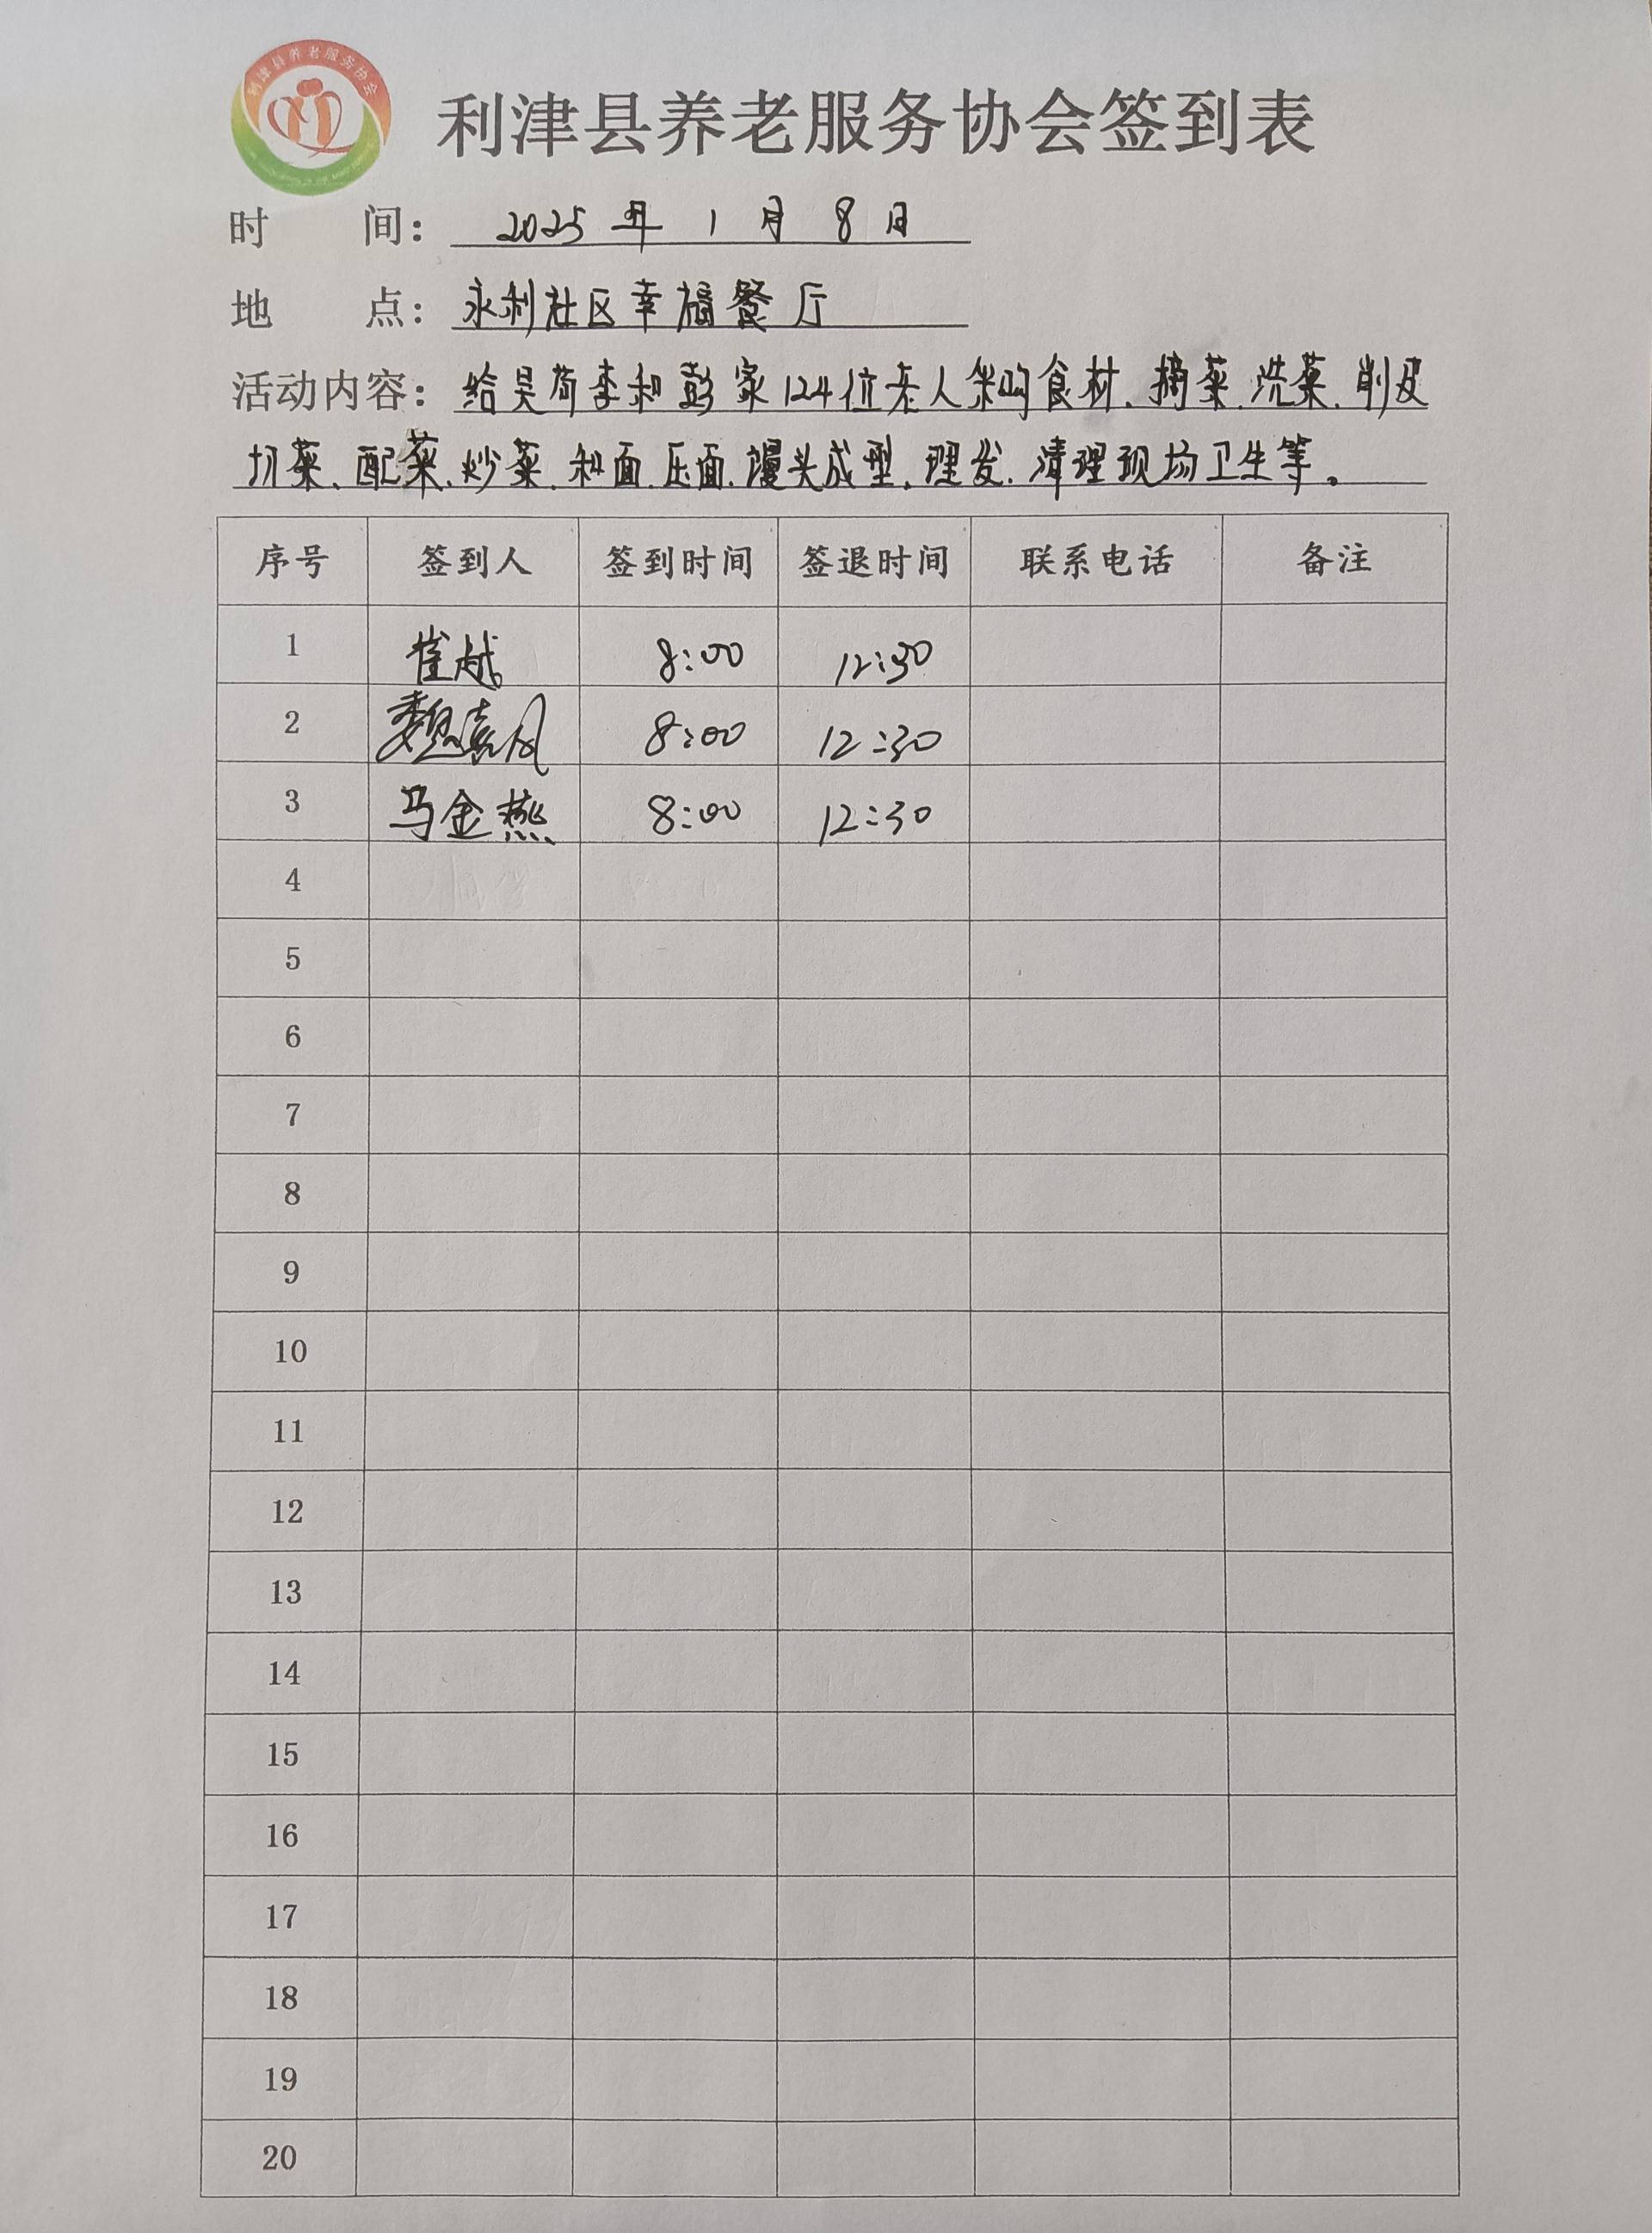 利津县养老服务协会
利津县养老服务协会签到表
时 间： 2025 年 1 月 8 日
地 点： 永利社区幸福餐厅
活动内容： 给吴苟李和彭家124位老人采购食材、摘菜、洗菜、削皮
切菜、配菜、炒菜、和面、压面、馒头成型、理发、清理现场卫生等。
序号 签到人 签到时间 签退时间 联系电话 备注
1 崔越 8:00 12:30
2 魏 8:00 12:30
3 马金燕 8:00 12:30
4
5
6
7
8
9
10
11
12
13
14
15
16
17
18
19
20